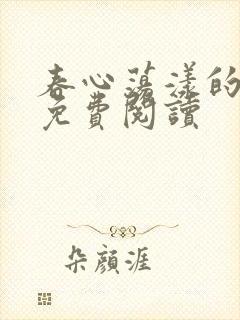 春心蕩漾的
免費閱讀
朵顏涯